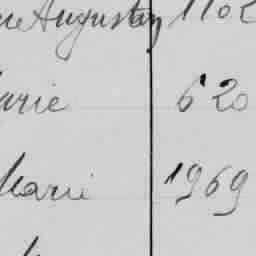 Augustin 1102
arie 620
Marie 1969